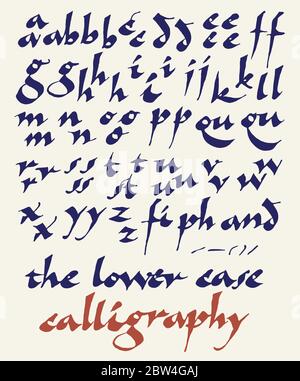 a a b b b c c d d e e e e f f
g g h h i i i i j j k k l l
m m n n o o p p qu qu
r r s s s s t t u u u v v w w
x x y y z z fi ph and
the lower case
calligraphy
alamy
Image ID: 2BW4GAJ
www.alamy.com